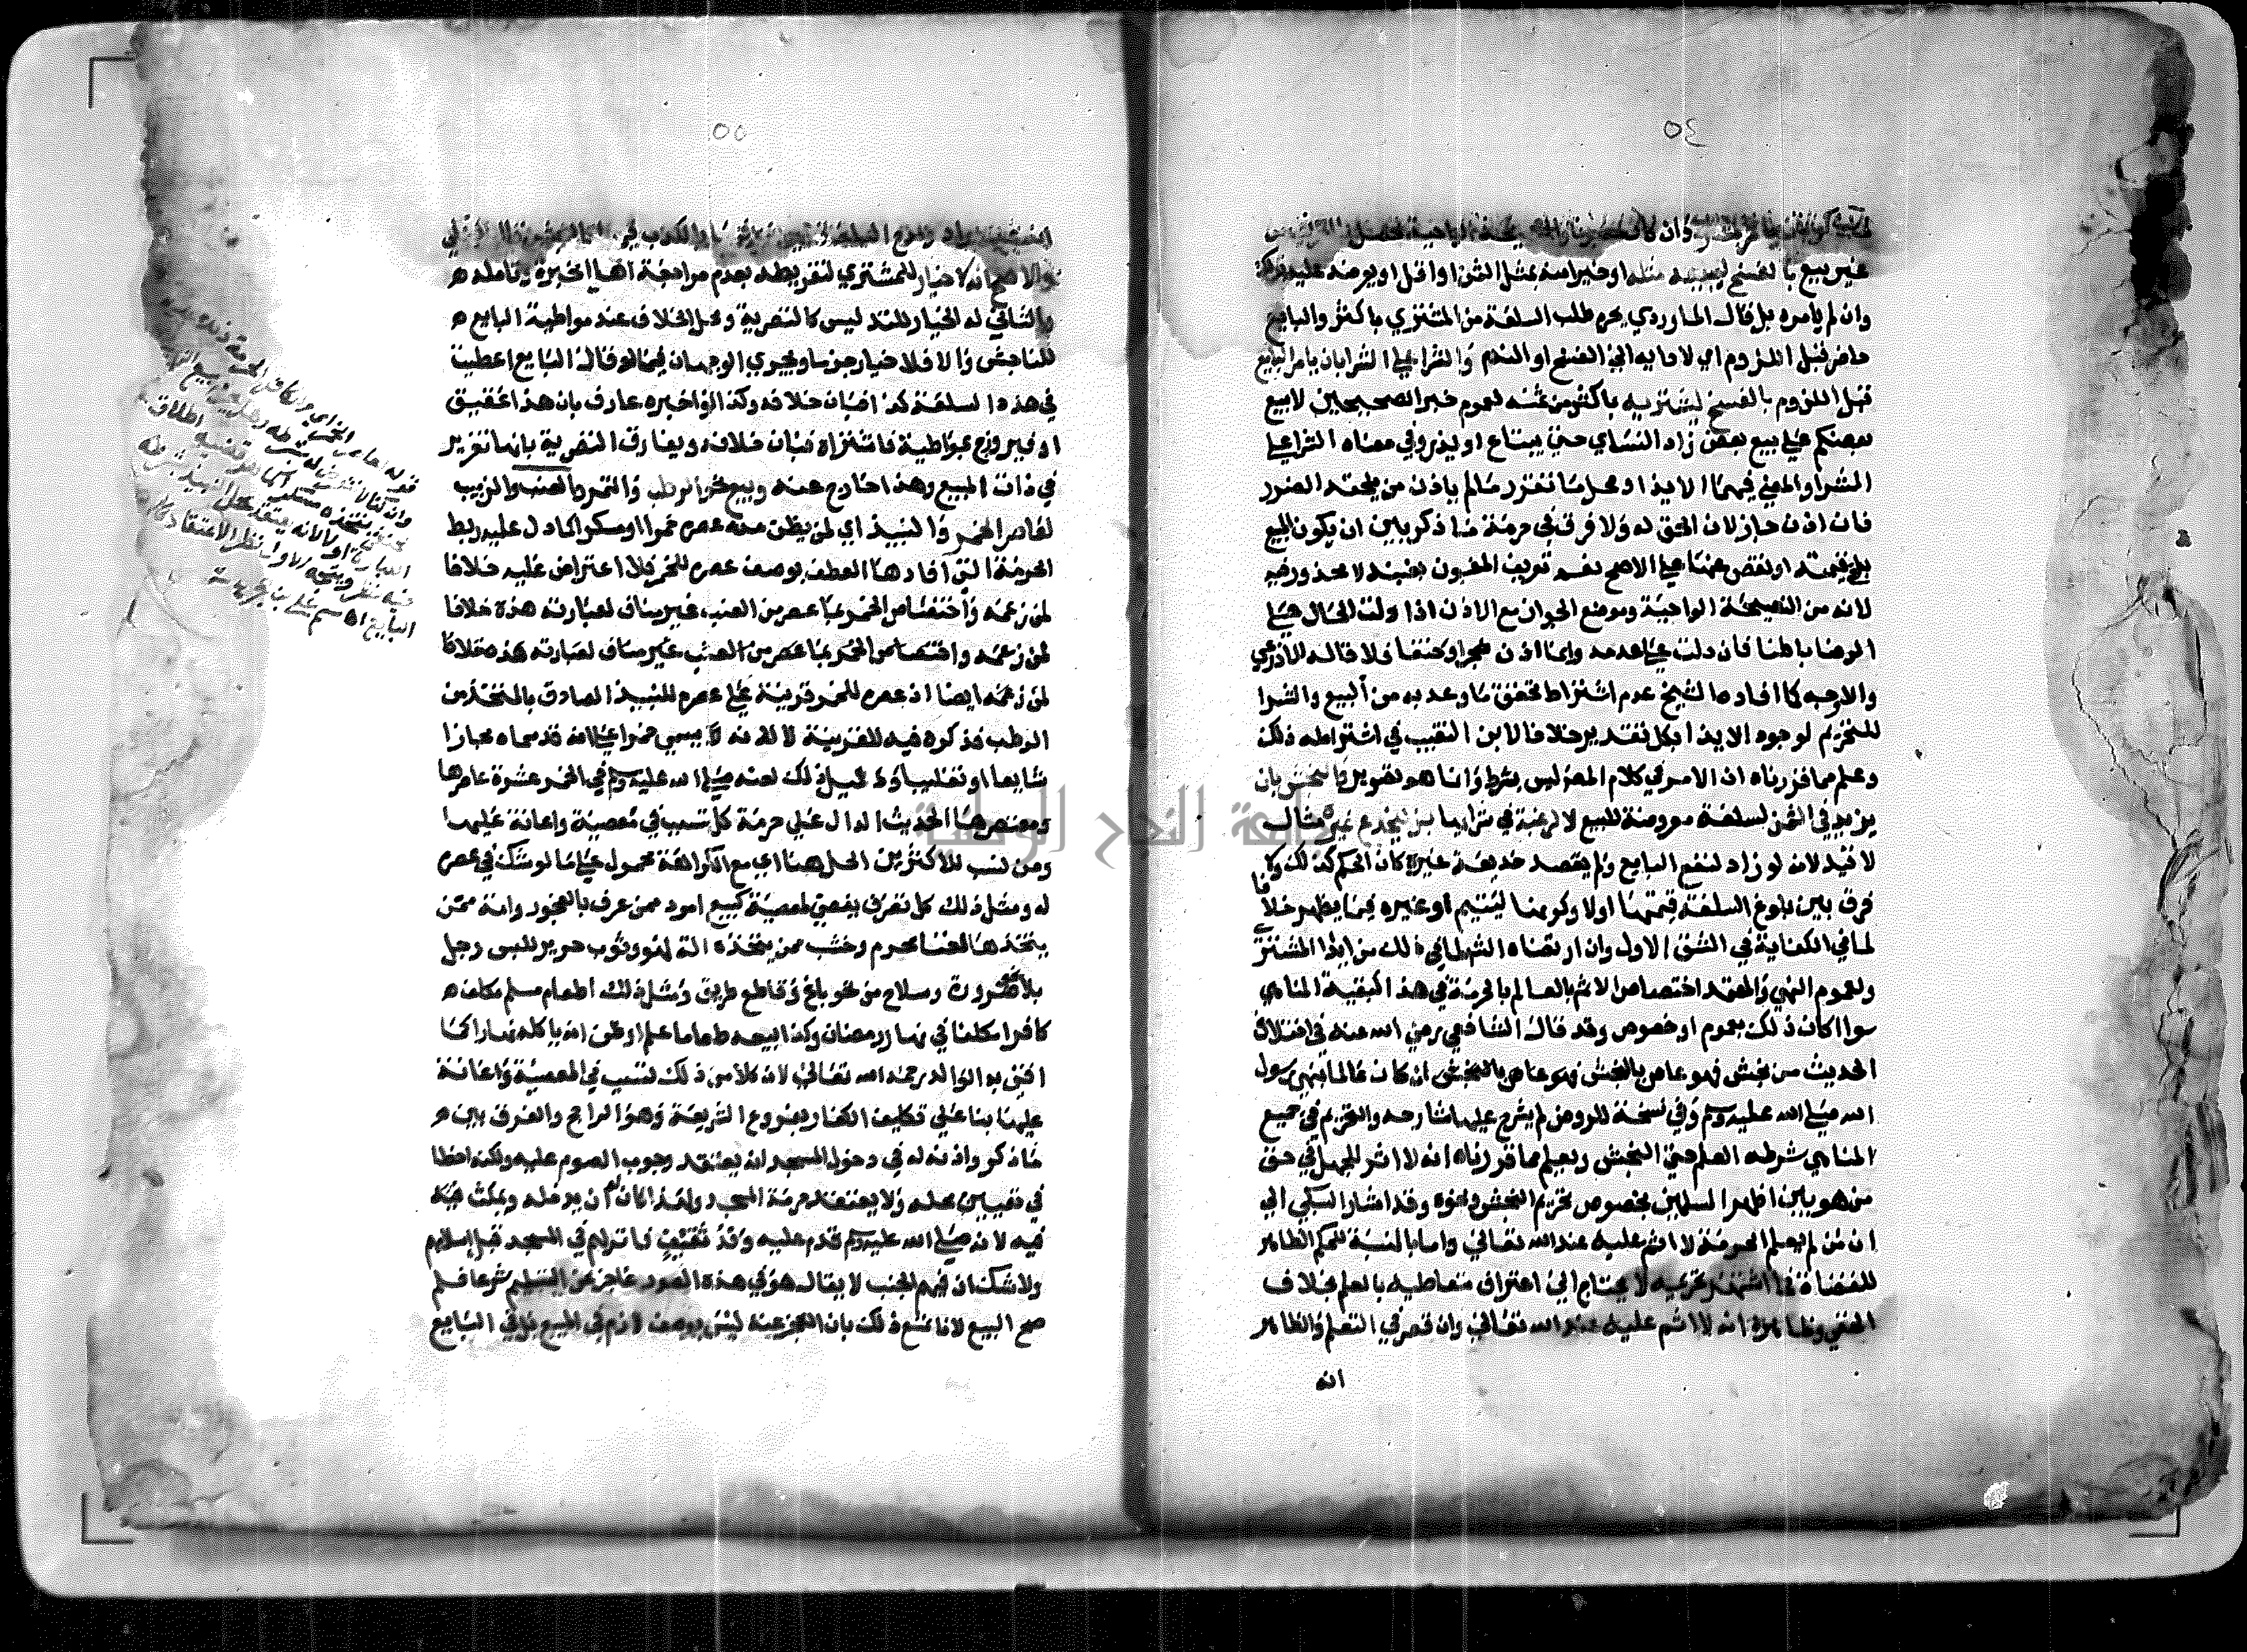 ٥٤
غير بيع بالفسخ ليبيعه مثله او خيرا منه بمثل الثمن او اقل او يعرضه عليه
وان لم يامره بل قال الماوردي يحرم طلب السلعة من المشتري باكثر والبايع
حاضر قبل اللزوم اي لادايه الي الفسخ او الندم والشرا علي الشرا بان يامر البايع
قبل اللزوم بالفسخ ليشتريه باكثر من ثمنه لعموم خبر الصحيحين لا يبيع
بعضكم علي بيع بعض زاد النساي حتي يبتاع او يذر وفي معناه الشرا علي
الشرا والمعني فيهما الايذا ومحل ما تقرر ما لم ياذن من يلحقه الضرر
فان اذن جاز لان الحق له ولا فرق في حرمة ما ذكر بين ان يكون المبيع
بلغ قيمته او نقص عنها علي الاصح نعم تعريف المغبون بغبنه لا محذور فيه
لانه من النصيحة الواجبة وموضع الجواز مع الاذن اذا دلت الحال علي
الرضا باطنا فان دلت علي عدمه وانما اذن ضجرا وحنقا فلا قاله الاذرعي
والاوجه كما افاده الشيخ عدم اشتراط تحقق ما وعد به من البيع والشرا
للتحريم لوجود الايذا بكل تقدير خلافا لابن النقيب في اشتراطه ذلك
وعلم مما قررناه ان الامر في كلام المص ليس بشرط وانما هو تصوير والنجش بان
يزيد في الثمن لسلعة معروضة للبيع لا لرغبة في شرايها بل ليخدع غيره مثال
لا قيد لانه لو زاد لنفع البايع ولم يقصد خديعة غيره كان الحكم كذلك ولا
فرق بين بلوغ السلعة قيمتها اولا وكونها ليتيم او غيره فيما يظهر خلافا
لما في الكفاية في الشق الاول وان ارتضاه الشهاب في ذلك من ايذا المشتري
ولعموم النهي والمعتمد اختصاص الاثم بالعالم بالحرمة في هذا كبقية المناهي
سوا اكان ذلك بعموم او خصوص وقد قال الشافعي رضي الله عنه في اختلاف
الحديث من نجش فهو عاص بالنجش فهو عاص بالنجش ان كان عالما بنهي رسول
الله صلي الله عليه وسلم وفي نسخة للروض لم يشرح عليها شارحه والتحريم في جميع
المناهي شرطه العلم حتي النجش ويعلم مما قررناه انه لا اثر للجهل في حق
من هو بين اظهر المسلمين بخصوص تحريم النجش ونحوه وقد اشار السبكي الي
ان من لم يعلم الحرمة لا اثم عليه عند الله تعالي واما بالنسبة للحكم الظاهر
للقضاة فما اشتهر تحريمه لا يحتاج الي اعتراف متعاطيه بالعلم بخلاف
الخفي وظاهره انه لا اثم عليه عند الله تعالي وان قصر في التعلم والظاهر
انه
٥٥
والاصح انه لا خيار للمشتري لتفريطه بعدم مراجعة اهل الخبرة وتامله
والثاني له الخيار للتدليس كالتصرية ومحل الخلاف عند مواطية البايع
للناجش والا فلا خيار جزما ويجري الوجهان فيما لو قال البايع اعطيت
في هذه السلعة كذا فبان خلافه وكذا لو اخبره عارف بان هذا عقيق
او فيروزج بمواطية فاشتراه فبان خلافه ويفارق التصرية بانها تغرير
في ذات المبيع وهذا خارج عنه وبيع نحو الرطب والتمر والعنب والزبيب
لعاصر الخمر والنبيذ اي لمن يظن منه عصره خمرا او مسكرا كما دل عليه ربط
الحرمة التي افادها العطف بوصف عصره للخمر فلا اعتراض عليه خلافا
لمن زعمه واختصاص الخمر بما عصر من العنب غير مناف لعبارته هذه خلافا
لمن زعمه واختصاص الخمر بما عصر من العنب غير مناف لعبارته هذه خلافا
لمن زعمه ايضا اذ عصره للخمر قرينة علي عصره للنبيذ الصادق بالمتخذ من
الرطب فذكره فيه للقرينة لا لانه لا يسمي خمرا علي انه قد سماه مجازا
شايعا او تغليبا ودليل ذلك لعنه صلي الله عليه وسلم في الخمر عشرة عاصرها
ومعتصرها الحديث الدال علي حرمة كل تسبب في معصية واعانة عليها
ومن نسب للاكثرين الحل هنا اي مع الكراهة محمول علي ما لو شك في عصره
له ومثل ذلك كل تصرف يفضي لمعصية كبيع امرد ممن عرف بالفجور وامة ممن
يتخذها لغنا محرم وخشب ممن يتخذه الة لهو وثوب حرير للبس رجل
بلا ضرورة وسلاح من نحو باغ وقاطع طريق ومثل ذلك اطعام مسلم مكلف
كافرا مكلفا في نهار رمضان وكذا بيعه طعاما علم او ظن انه ياكله نهارا كما
افتي به الوالد رحمه الله تعالي لان كلا من ذلك تسبب في المعصية واعانة
عليها بنا علي تكليف الكفار بفروع الشريعة وهو الراجح والفرق بين
ما ذكر واذنه له في دخول المسجد انه يعتقد وجوب الصوم عليه ولكنه اخطا
في تعيين محله ولا يعتقد حرمة المسجد ولهذا كان له ان يدخله ويمكث فيه
فيه لانه صلي الله عليه وسلم قدم عليه وفد ثقيف فانزلهم في المسجد قبل اسلامهم
ولا شك ان فيهم الجنب لا يقال هو في هذه الصور عاجز عن التسليم شرعا فلم
صح البيع لانا نمنع ذلك بان العجز عنه ليس بوصف لازم في المبيع بل في البايع